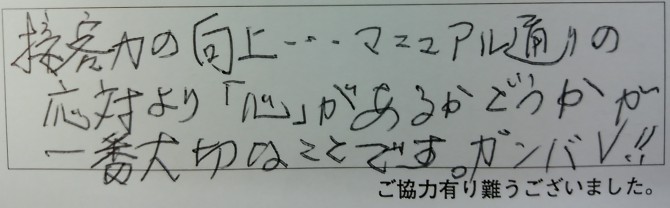 接客力の向上・・・マニュアル通りの
応対より「心」があるかどうかが
一番大切なことです。ガンバレ!!
ご協力有り難うございました。